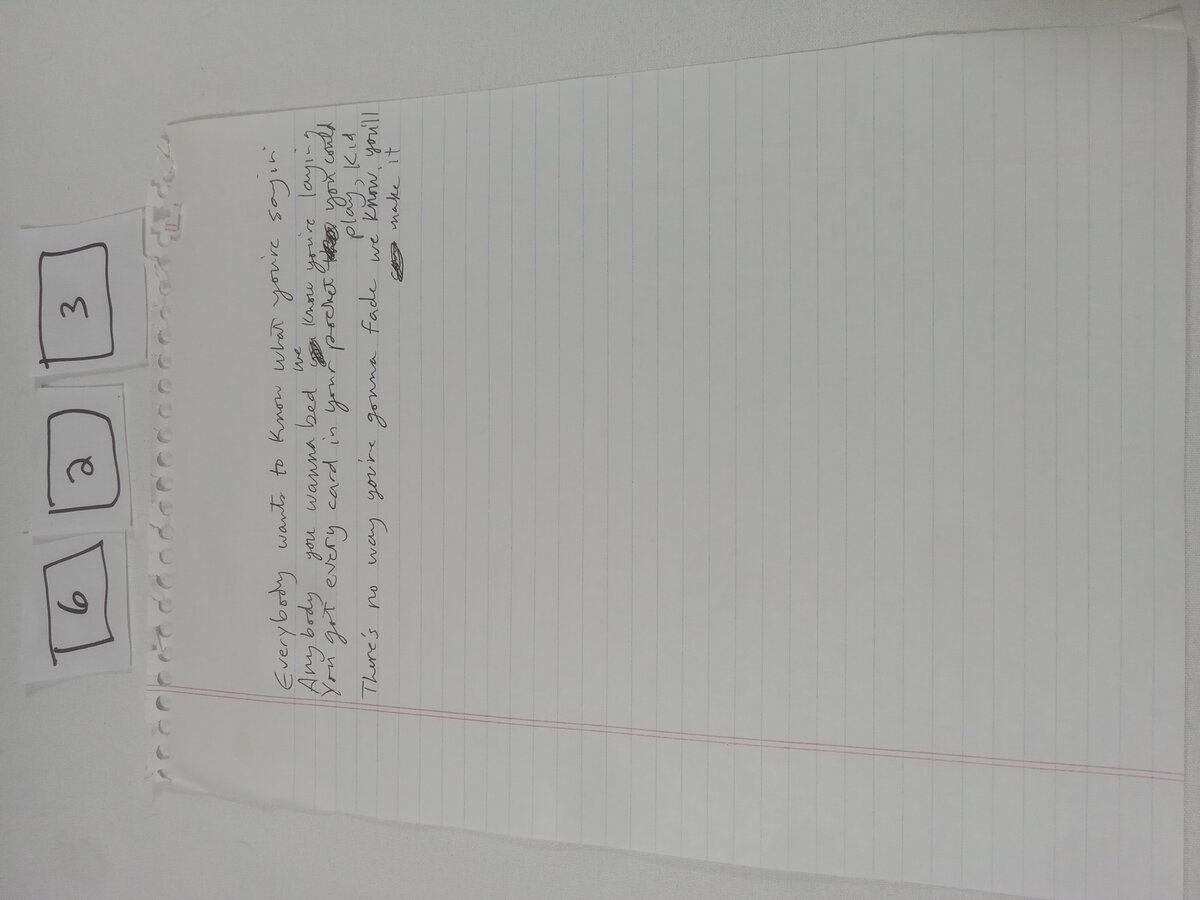 6 2 3
Everybody wants to know what you're sayin'
Anybody you wanna bed we know you're laying
You got every card in your pocket you could
play, kid
There's no way you're gonna fade we know you'll
make it